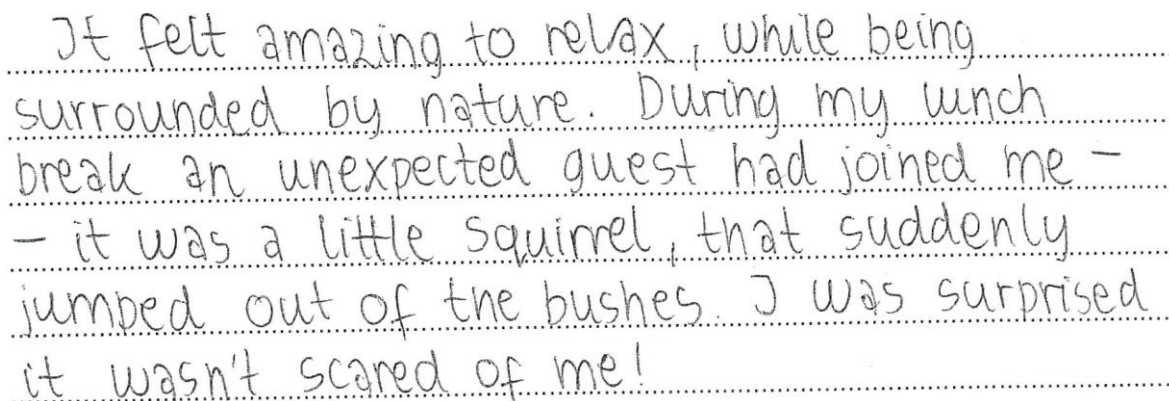 It felt amazing to relax, while being
surrounded by nature. During my lunch
break an unexpected guest had joined me –
– it was a little squirrel, that suddenly
jumped out of the bushes. I was surprised
it wasn't scared of me!